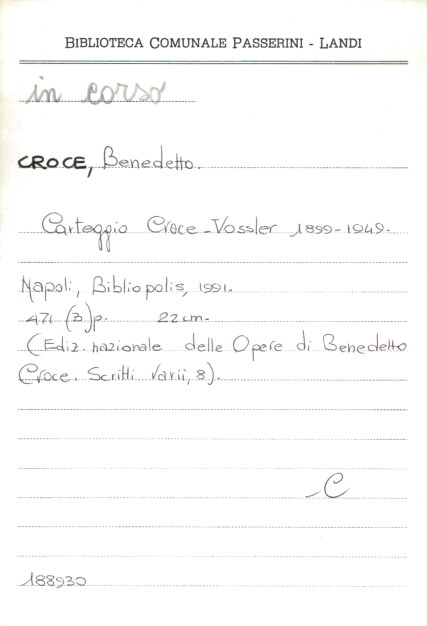 BIBLIOTECA COMUNALE PASSERINI - LANDI
in corso
CROCE, Benedetto.
Carteggio Croce-Vossler 1899-1949.
Napoli, Bibliopolis, 1991.
471 (3)p. 22 cm.
(Ediz. nazionale delle Opere di Benedetto
Croce. Scritti Varii, 8).
-C
188930